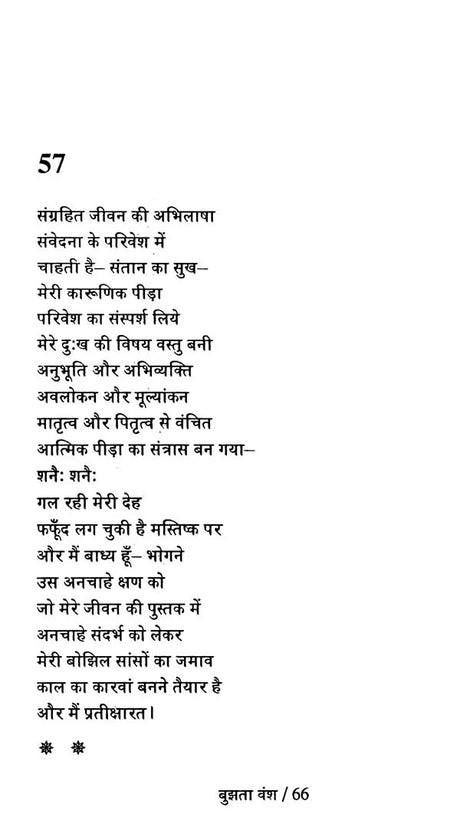 57
संग्रहित जीवन की अभिलाषा
संवेदना के परिवेश में
चाहती है– संतान का सुख–
मेरी कारूणिक पीड़ा
परिवेश का संस्पर्श लिये
मेरे दुःख की विषय वस्तु बनी
अनुभूति और अभिव्यक्ति
अवलोकन और मूल्यांकन
मातृत्व और पितृत्व से वंचित
आत्मिक पीड़ा का संत्रास बन गया–
शनैः शनैः
गल रही मेरी देह
फफूँद लग चुकी है मस्तिष्क पर
और मैं बाध्य हूँ– भोगने
उस अनचाहे क्षण को
जो मेरे जीवन की पुस्तक में
अनचाहे संदर्भ को लेकर
मेरी बोझिल सांसों का जमाव
काल का कारवां बनने तैयार है
और मैं प्रतीक्षारत।
बुझता वंश / 66